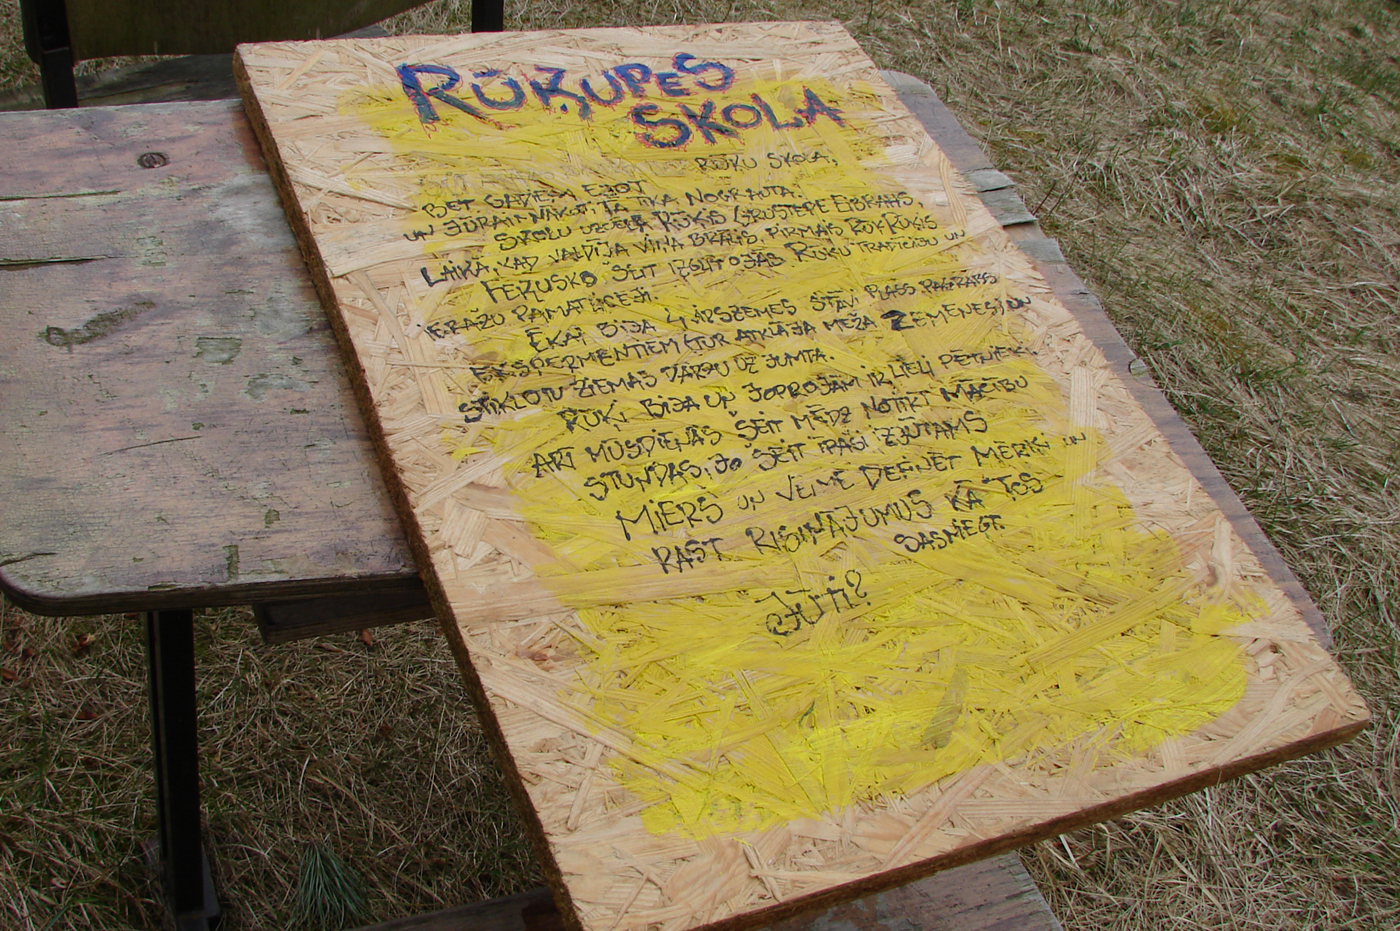 RŪĶUPES
SKOLA
RŪĶU SKOLA,
BET GADIEM EJOT
UN JŪRAI NĀKOT, TĀ TIKA NOGRAUTA.
SKOLU UZCĒLA RŪĶIS GRUSTEPE EIBRAHS,
LAIKĀ, KAD VALDĪJA VIŅA BRĀLIS, PIRMAIS RŪĶRŪĶIS
FERUSKO ŠEIT IZGLĪTOJĀS RŪĶU TRADĪCIJU UN
IERAŽU PAMATLICĒJI.
ĒKAI BIJA 4 APSZEMES STĀVI PLAŠS PAGRABS
EKSPERMENTIEM KUR ATKLĀJA MEŽA ZEMENES, UN
STIKLOTU ZIEMAS DĀRZU UZ JUMTA.
RŪĶI BIJA UN JOPROJĀM IR LIELI PĒTNIEKI.
ARĪ MŪSDIENĀS ŠEIT MĒDZ NOTIKT MĀCĪBU
STUNDAS, JO ŠEIT ĪPAŠI IZJŪTAMS
MIERS UN VĒLME DEFINĒT MĒRĶI UN
RAST RISINĀJUMUS KĀ TOS
SASNIEGT.
JŪTI?